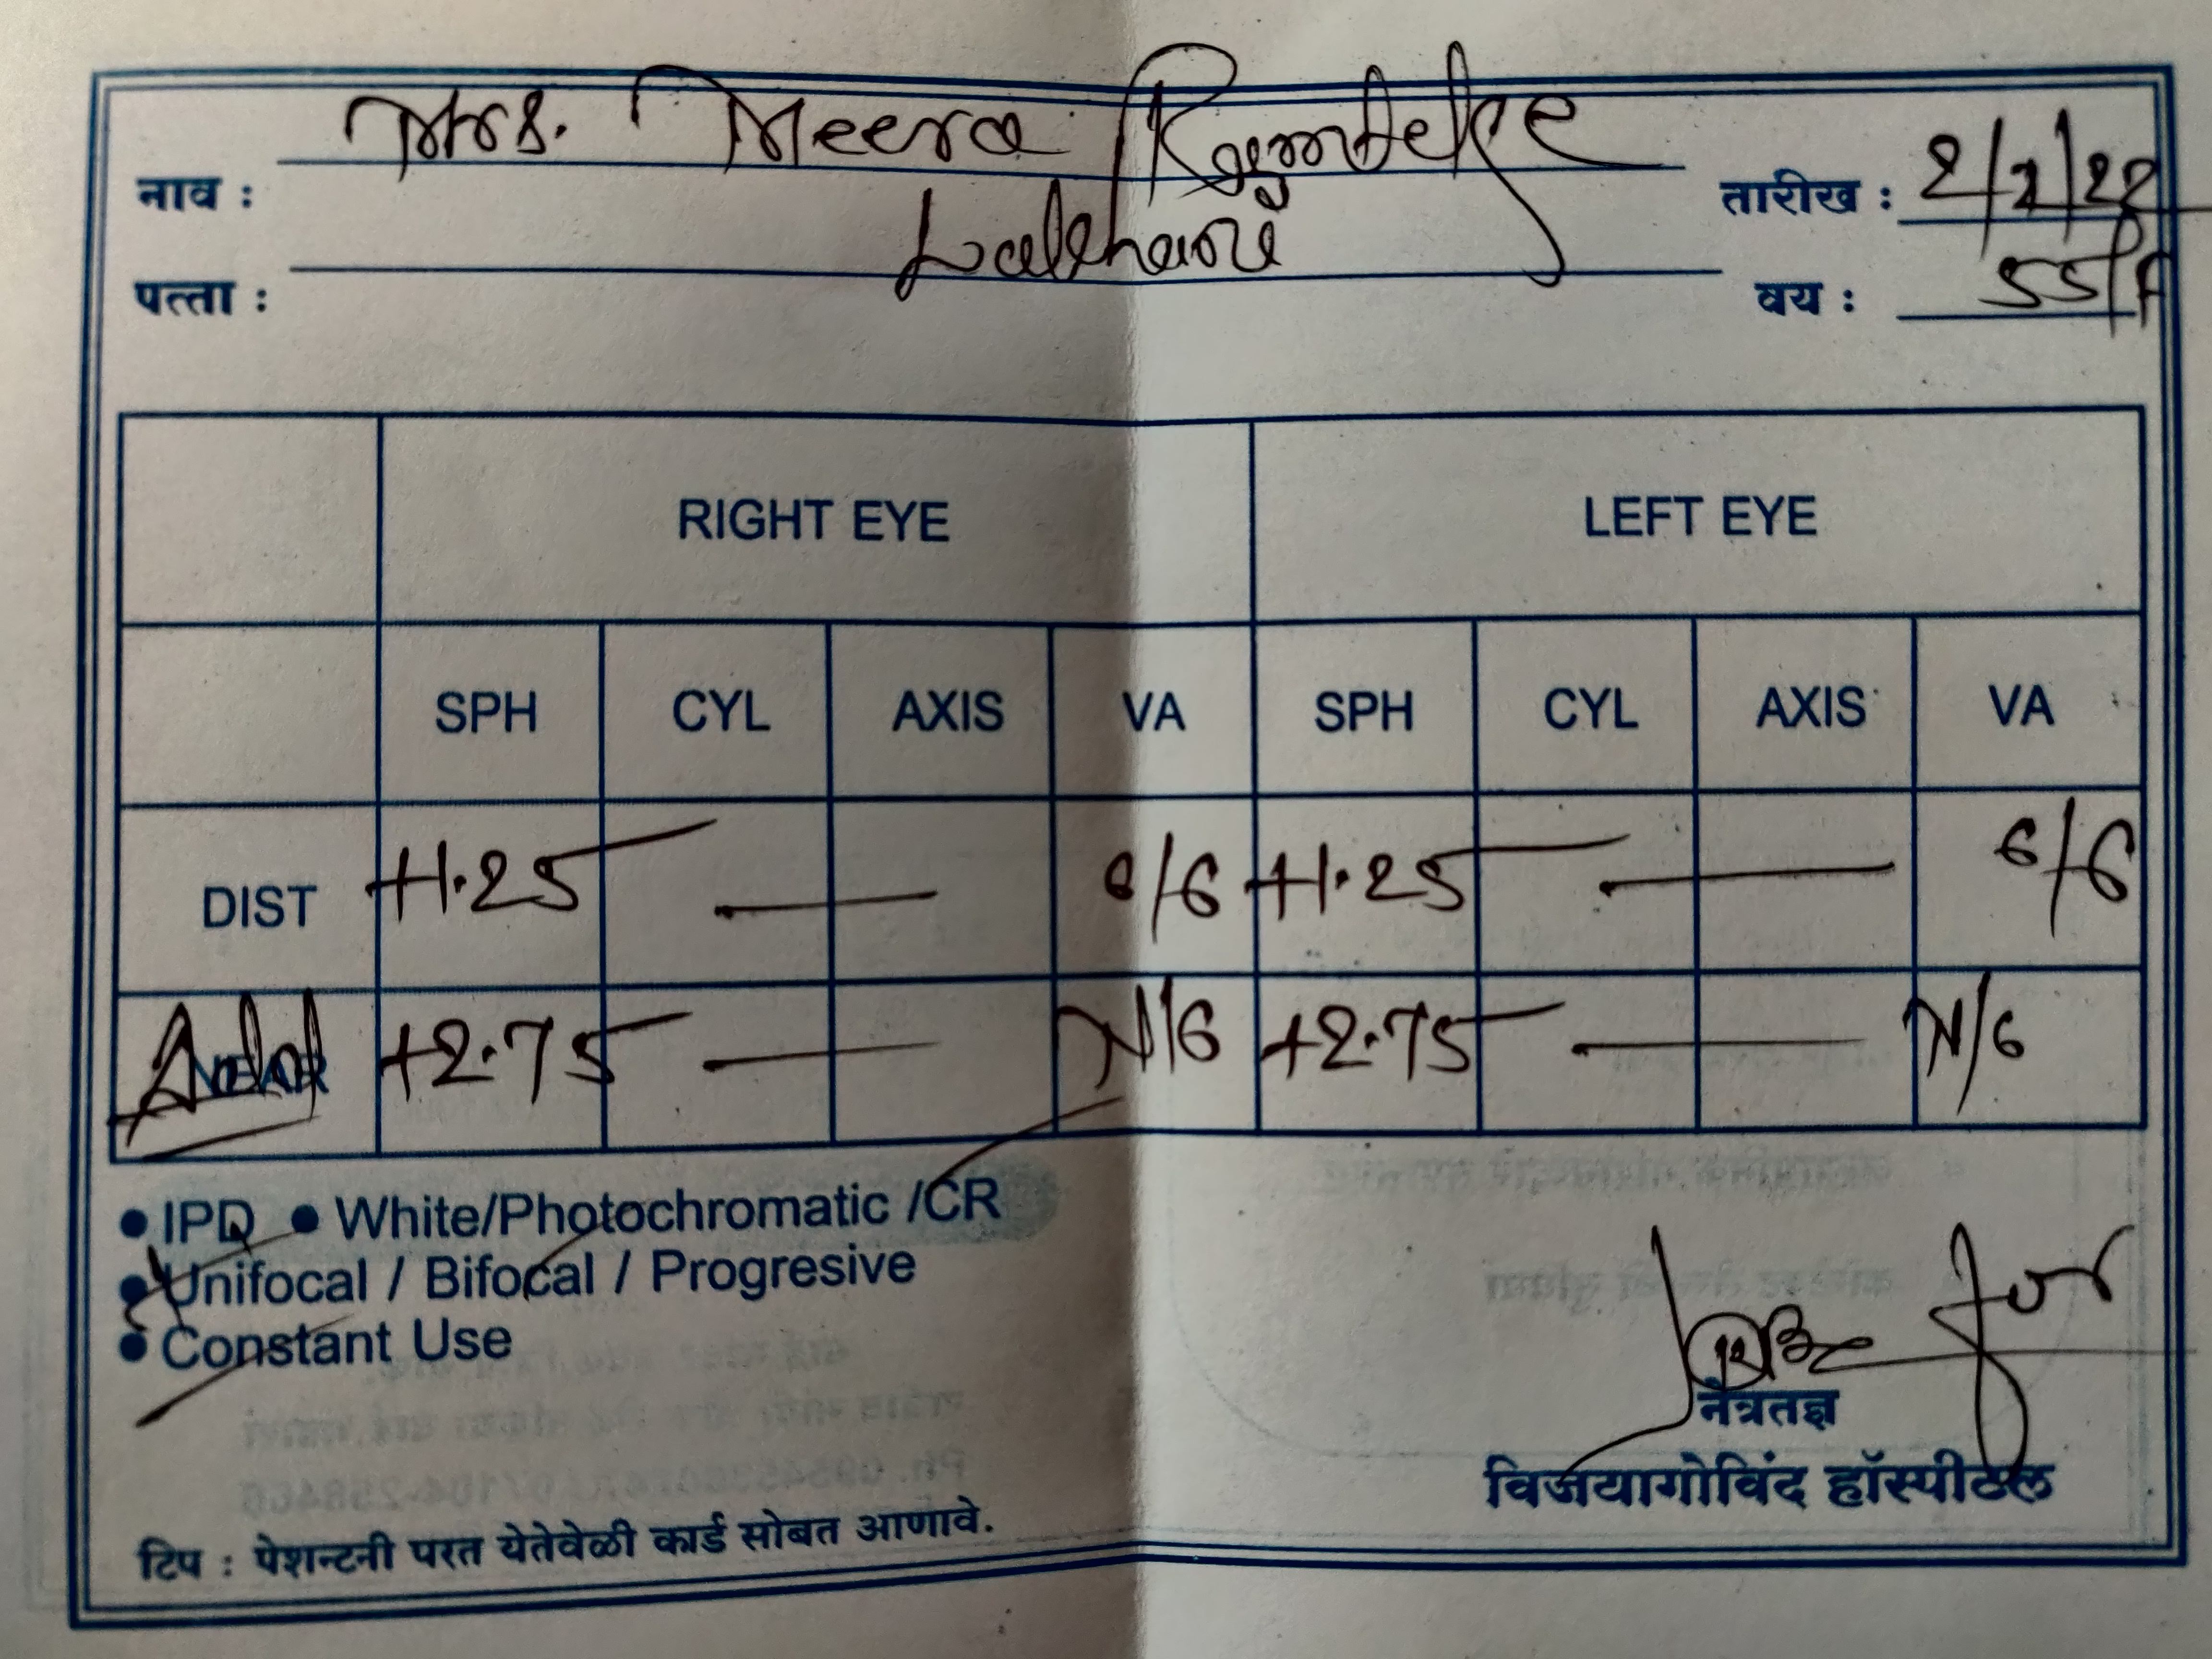 नाव : Mrs. Meera Kendekre तारीख : 2/1/22
पत्ता : वय : 55/F
RIGHT EYE LEFT EYE
SPH CYL AXIS VA SPH CYL AXIS VA
DIST +1.25 — 6/6 +1.25 — 6/6
NEAR Add +2.75 — N/6 +2.75 — N/6
• IPD • White/Photochromatic /CR
• Unifocal / Bifocal / Progresive
• Constant Use
नेत्रतज्ञ
टिप : पेशन्टनी परत येतेवेळी कार्ड सोबत आणावे.